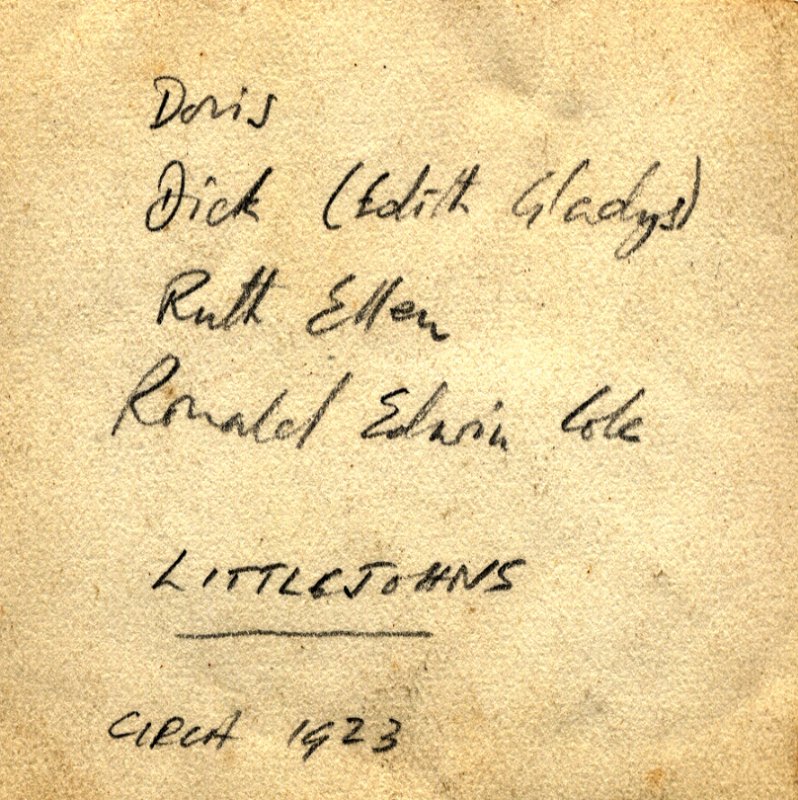 Doris
Dick (Edith Gladys)
Ruth Ellen
Ronald Edwin Cole
LITTLEJOHNS
CIRCA 1923